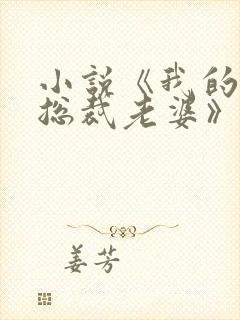 小说《我的
总裁老婆》
姜芳